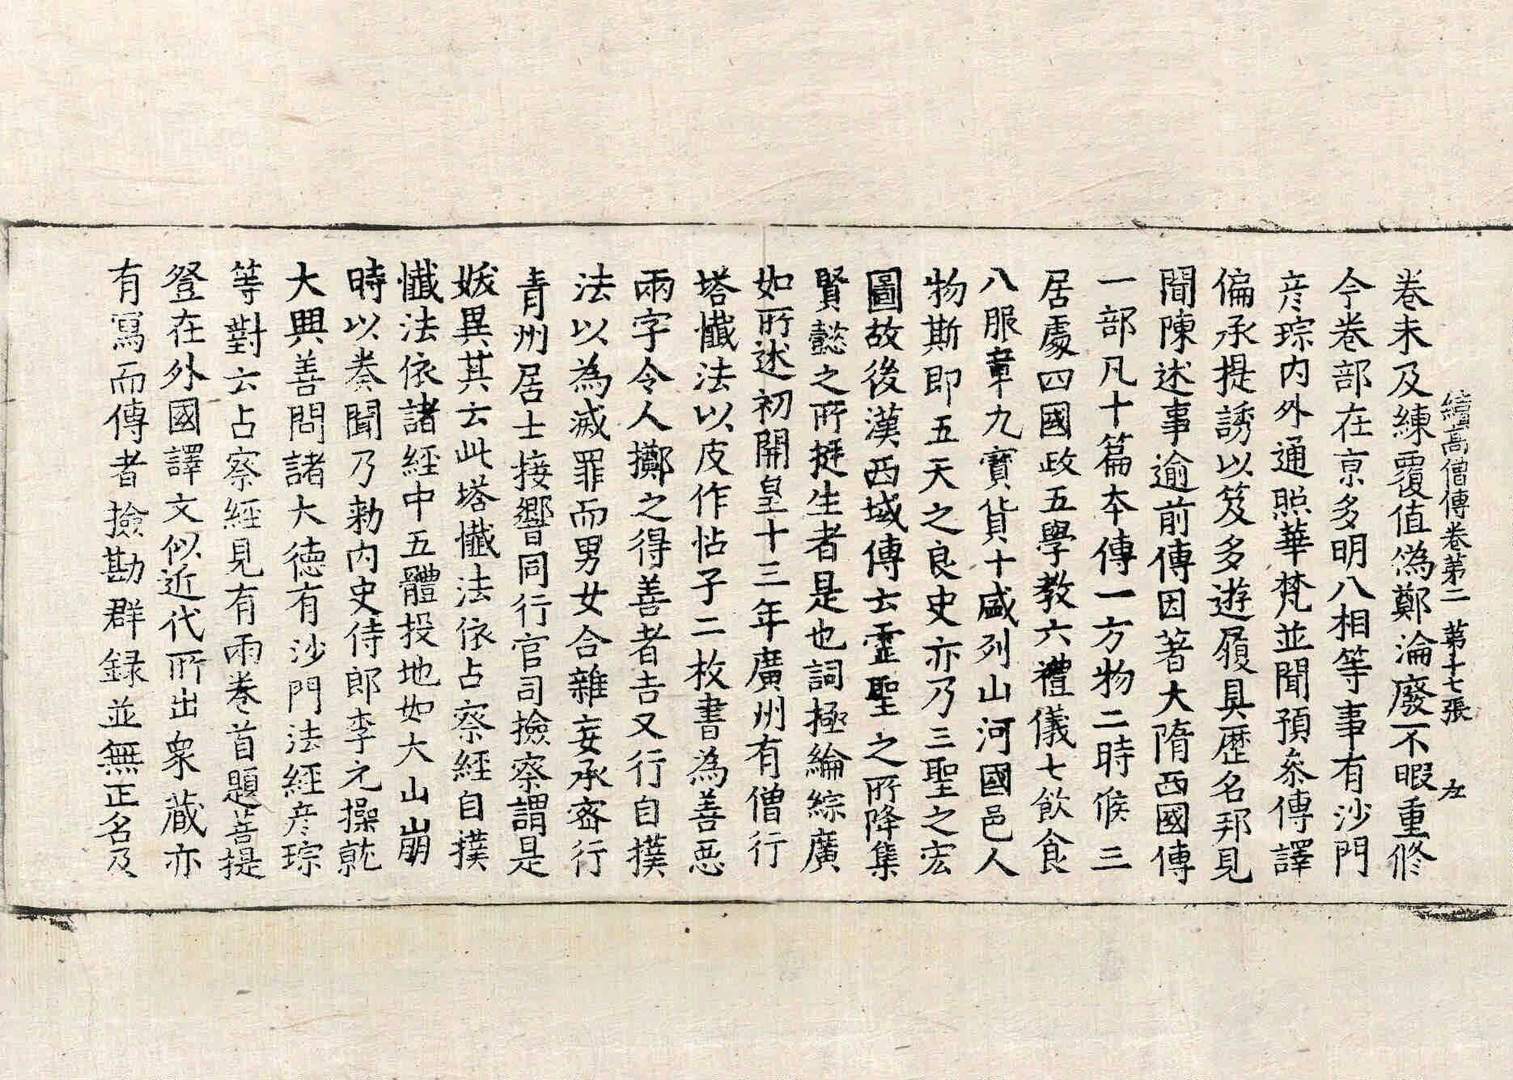 續高僧傳卷第二　第十七張　左
卷未及練覆值偽鄭淪廢不暇重修
今卷部在京多明八相等事有沙門
彥琮內外通照華梵並聞預叅傳譯
偏承提誘以笈多遊履具歷名邦見
聞陳述事逾前傳因著大隋西國傳
一部凡十篇本傳一方物二時候三
居處四國政五學教六禮儀七飲食
八服章九寶貨十盛列山河國邑人
物斯即五天之良史亦乃三聖之宏
圖故後漢西域傳云靈聖之所降集
賢懿之所挺生者是也詞極綸綜廣
如所述初開皇十三年廣州有僧行
塔懺法以皮作帖子二枚書為善惡
兩字令人擲之得善者吉又行自撲
法以為滅罪而男女合雜妄承密行
青州居士接響同行官司撿察謂是
妖異其云此塔懺法依占察經自撲
懺法依諸經中五體投地如大山崩
時以奏聞乃勅內史侍郎李元操就
大興善問諸大德有沙門法經彥琮
等對云占察經見有兩卷首題菩提
登在外國譯文似近代所出衆藏亦
有寫而傳者撿勘群錄並無正名及